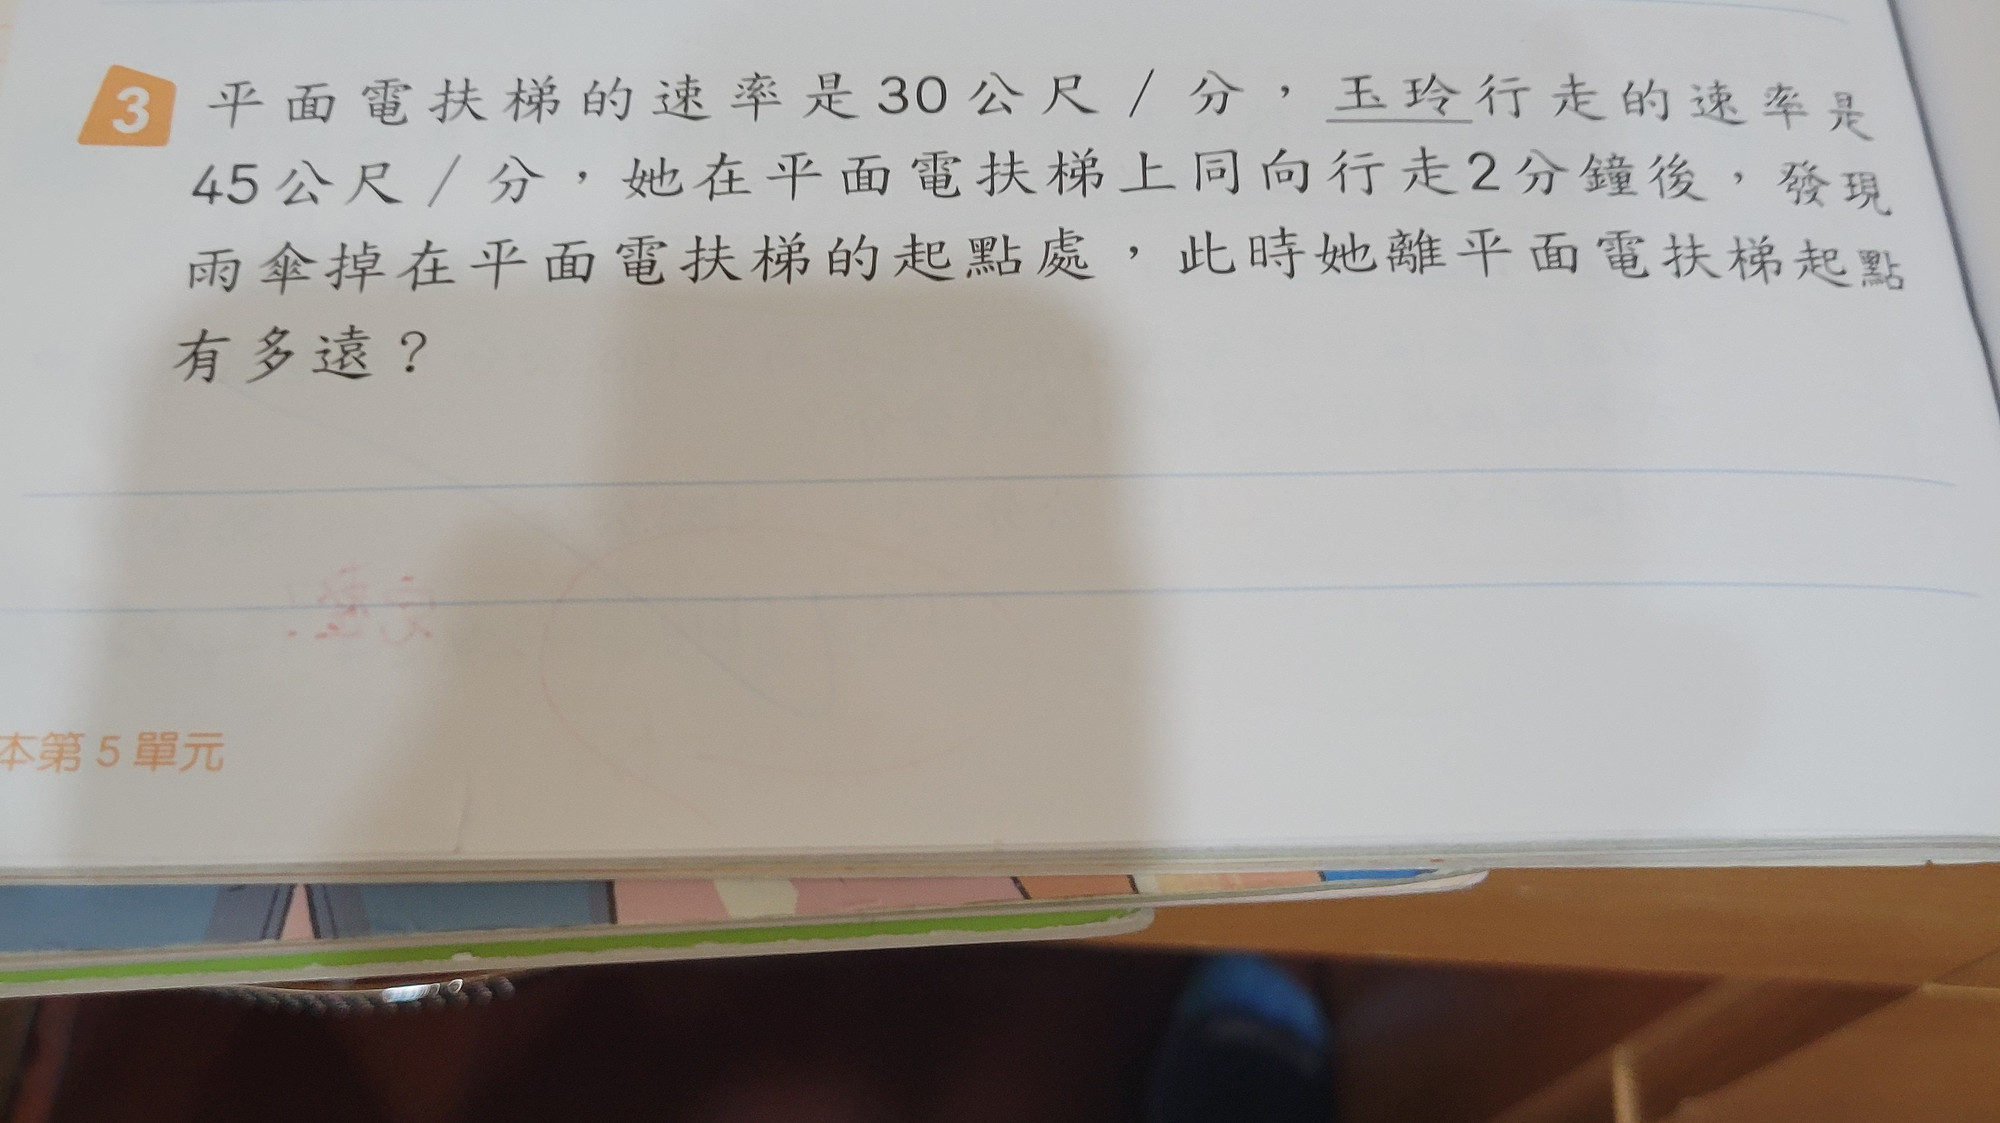 3 平面電扶梯的速率是30公尺/分，玉玲行走的速率是
45公尺/分，她在平面電扶梯上同向行走2分鐘後，發現
雨傘掉在平面電扶梯的起點處，此時她離平面電扶梯起點
有多遠？
本第5單元